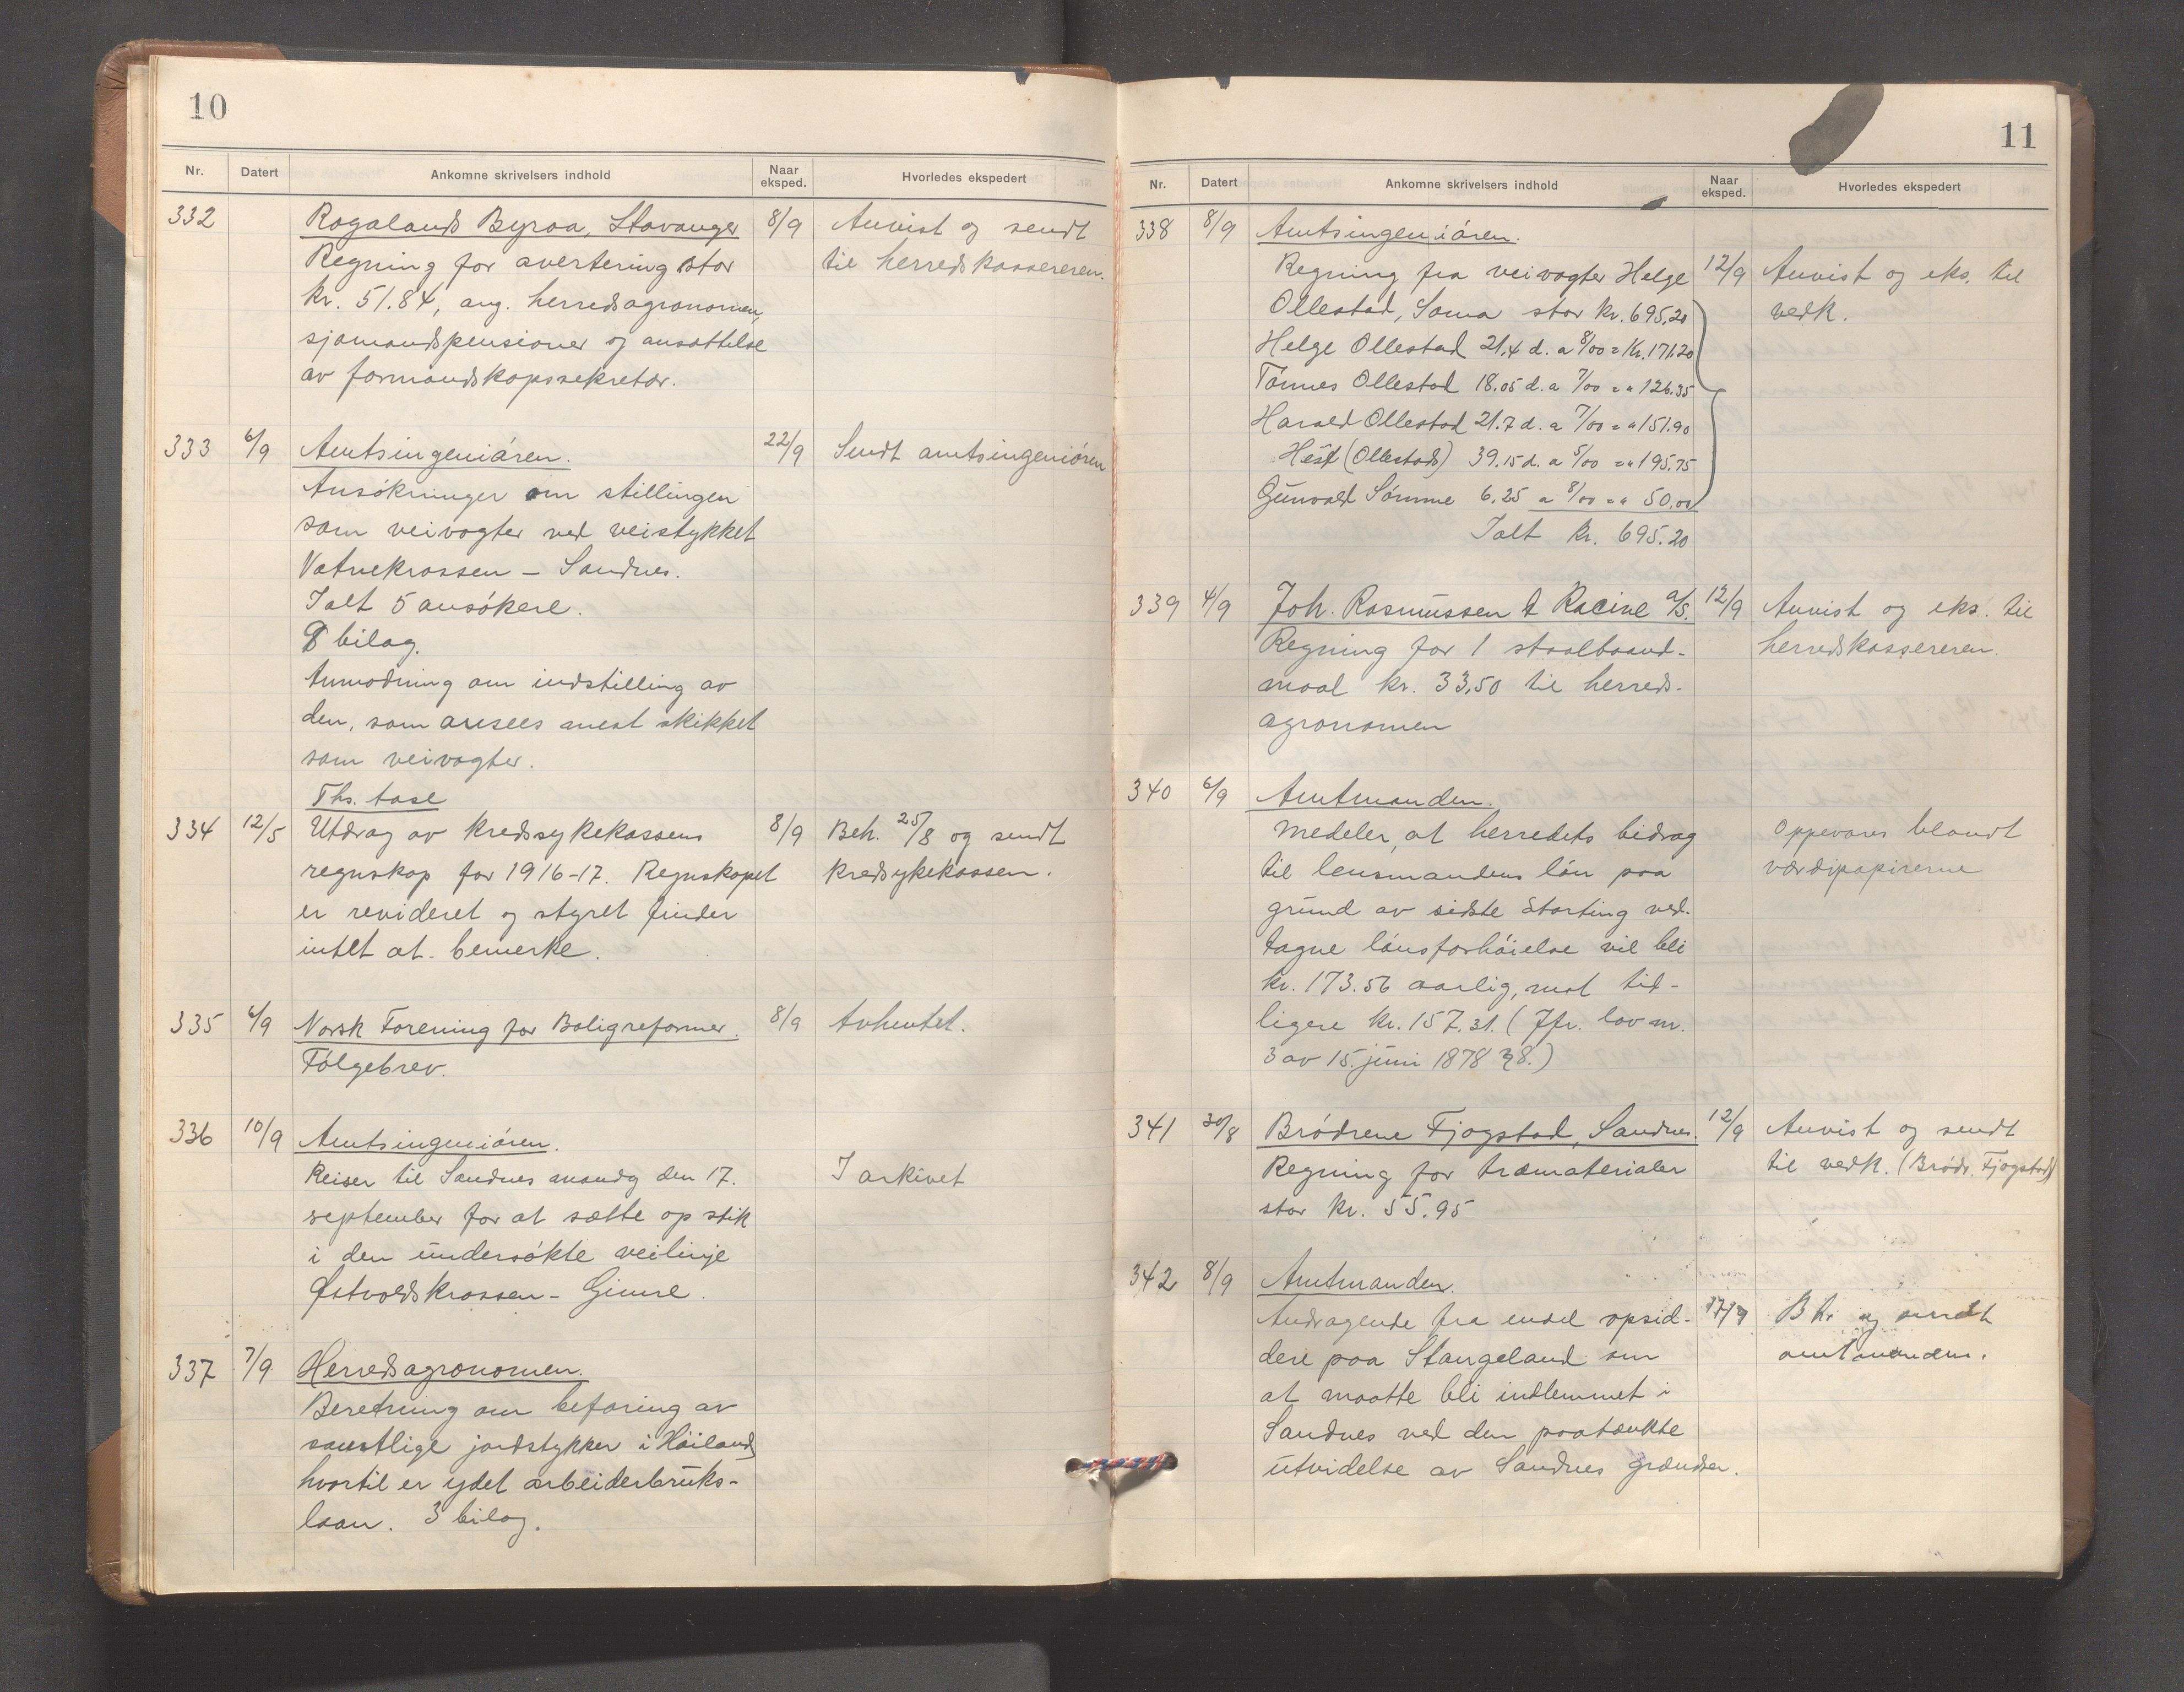 10
Nr. Datert Ankomne skrivelsers indhold Naar eksped. Hvorledes ekspedert
332 Rogalands Byraa, Stavanger 8/9 Anvist og sendt
Regning for avertering stor til herredskassereren.
kr. 51.84, ang. herredsagronomen,
sjømandspensioner og ansættelse
av formandskapssekretær.
333 6/9 Amtsingeniøren. 22/9 Sendt amtsingeniøren
Ansøkninger om stillingen
som veivogter ved veistykket
Vatnekrossen – Sandnes.
Ialt 5 ansøkere.
8 bilag.
Anmodning om indstilling av
den, som ansees mest skikket
som veivogter.
Ths. Aase
334 12/5 Utdrag av kredssykekassens 8/9 Beh. 25/8 og sendt
regnskap for 1916-17. Regnskapet kredsykekassen.
er revideret og styret finder
intet at bemerke.
335 6/9 Norsk Forening for Boligreformer. 8/9 Avhentet.
Følgebrev.
336 10/9 Amtsingeniøren.
Reiser til Sandnes mandg den 17. I arkivet
september for at sætte op stik
i den undersøkte veilinje
Østvoldskrossen – Gimre.
337 7/9 Herredsagronomen.
Beretning om befaring av
samtlige jordstykker i Høiland,
hvortil er ydet arbeiderbruks-
laan. 3 bilag.
11
Nr. Datert Ankomne skrivelsers indhold Naar eksped. Hvorledes ekspedert
338 8/9 Amtsingeniøren.
Regning fra veivogter Helge 12/9 Anvist og eks. til
Ollestad, Soma stor kr. 695.20 vedk.
Helge Ollestad 21.4 d. a 8/00 = Kr. 171.20
Tønnes Ollestad 18.05 d. a 7/00 = " 126.35
Harald Ollestad 21.7 d. a 7/00 = " 151.90
Hest (Ollestads) 39.15 d. a 5/00 = " 195.75
Gunvald Sømme 6.25 a 8/00 = " 50.00
Ialt kr. 695.20
339 4/9 Joh. Rasmussen & Racine A/S. 12/9 Anvist og eks. til
Regning for 1 staalbaand- herredskassereren.
maal kr. 33,50 til herreds-
agronomen
340 6/9 Amtmanden.
Medeler, at herredets bidrag Oppevares blandt
til lensmandens løn paa værdipapirerne
grund av sidste Storting ved-
tagne lønsforhøielse vil bli
kr. 173.56 aarlig, mot tid-
ligere kr. 157.31. (Jfr. lov nr.
3 av 15. juni 1878 § 8.)
341 30/8 Brødrene Fjogstad, Sandnes. 12/9 Anvist og sendt
Regning for træmaterialer til vedk. (Brødr. Fjogstad)
stor kr. 55.95
342 8/9 Amtmanden.
Andragende fra endel opsid- 17/9 Beh. og sendt
dere paa Stangeland om amtmanden.
at maatte bli indlemmet i
Sandnes ved den paatænkte
utvidelse av Sandnes grændser.